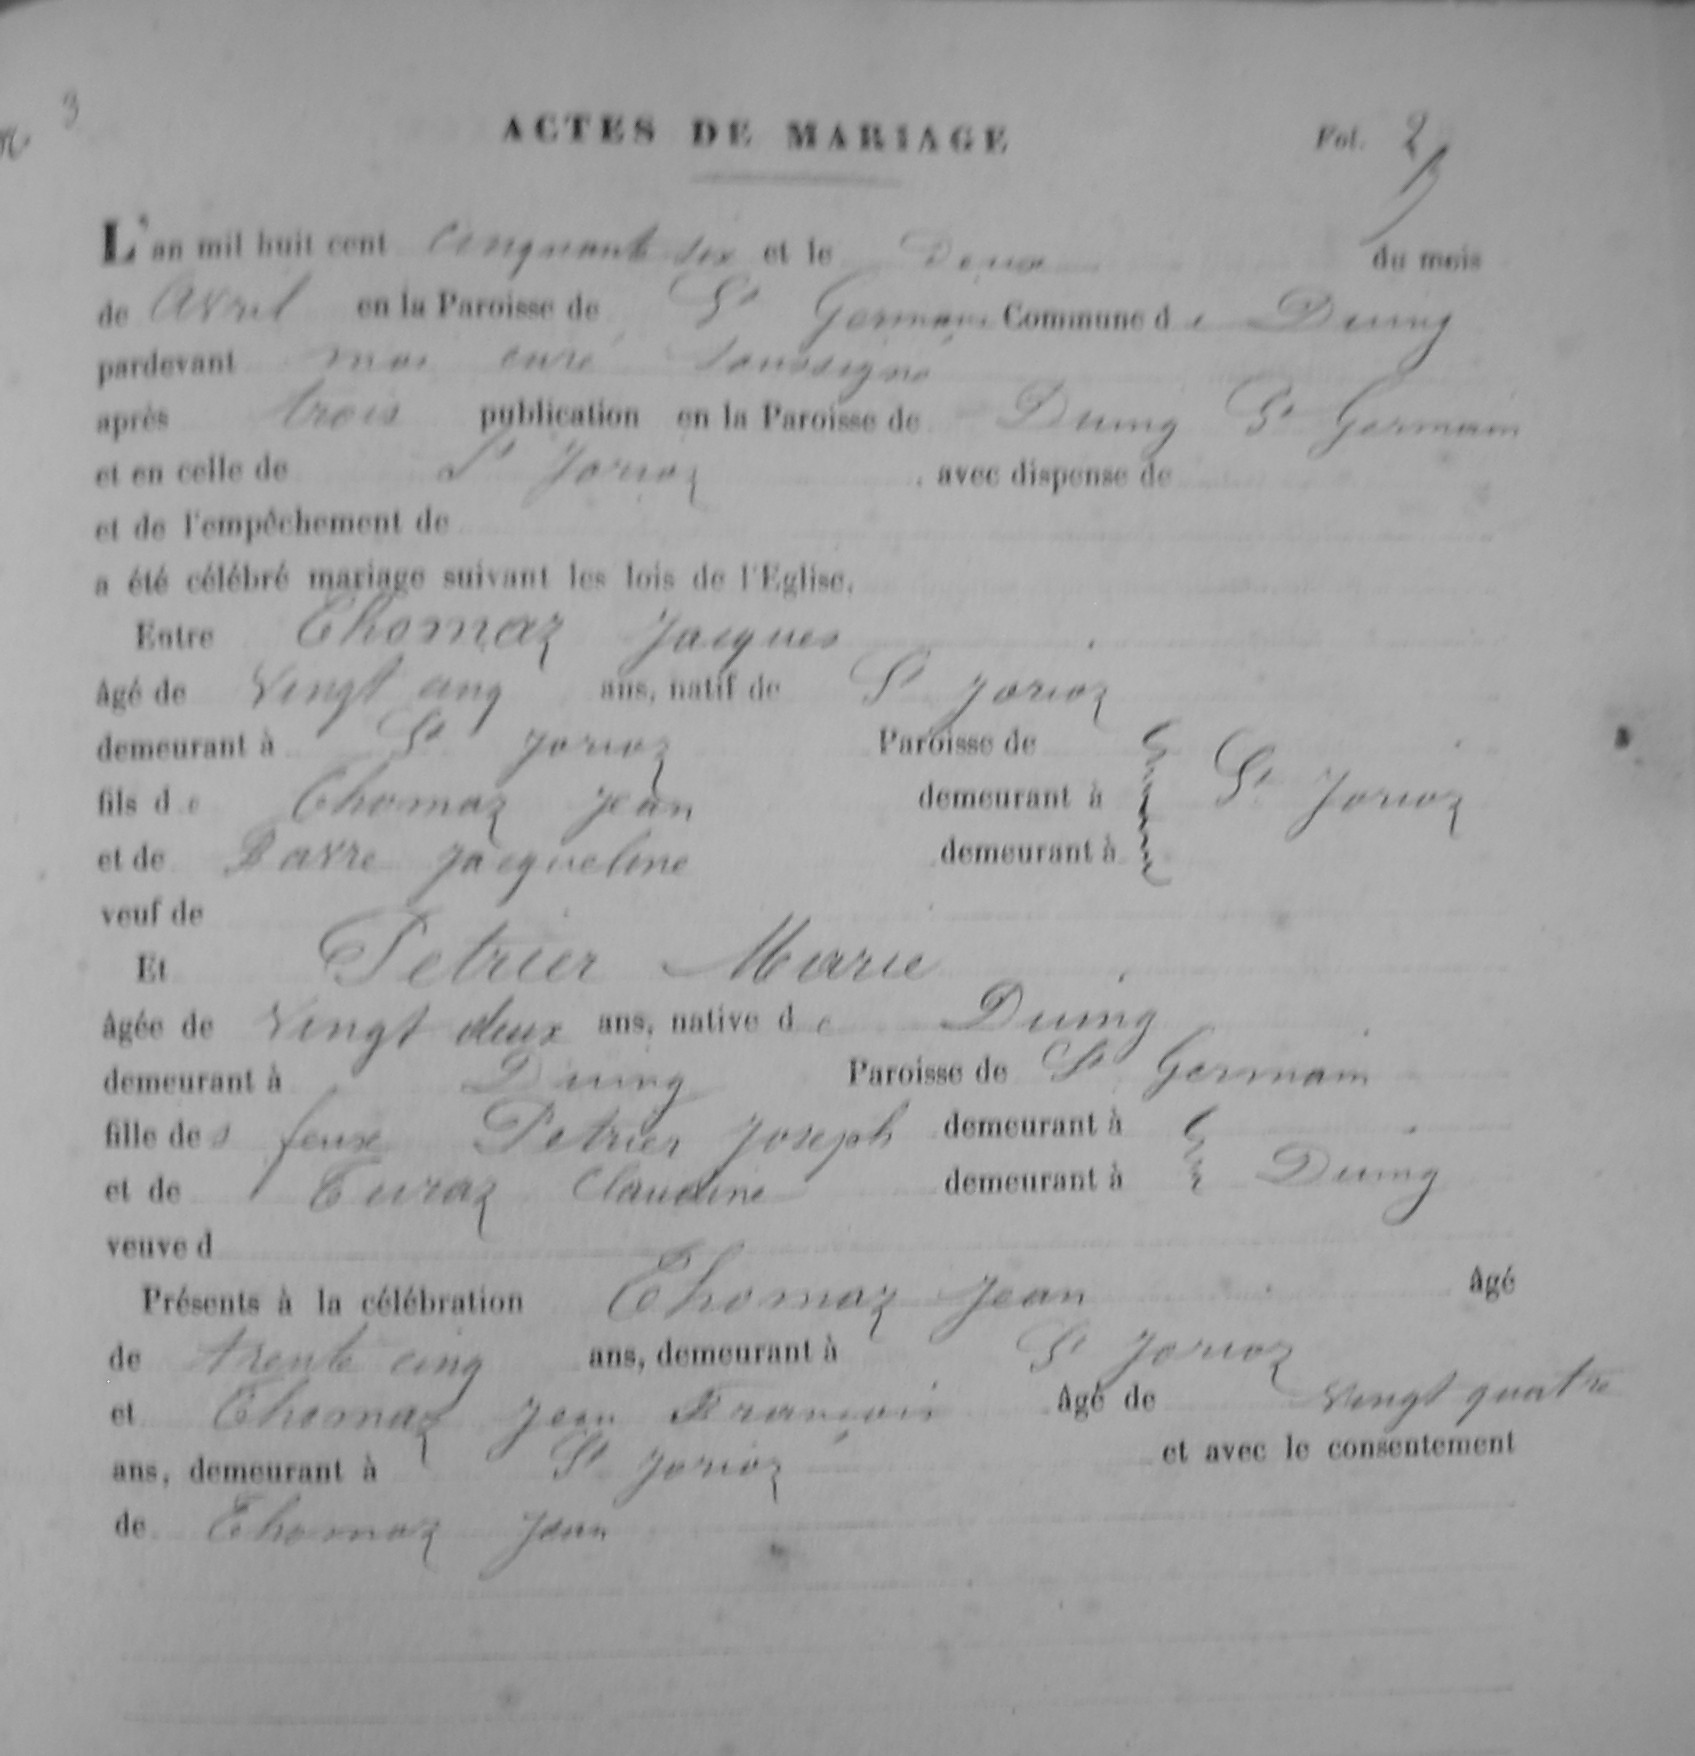 3
ACTES DE MARIAGE Fol. 2
L'an mil huit cent cinquante six et le Deux du mois
de Avril en la Paroisse de St Germain Commune de Duing
pardevant moi curé soussigné
après trois publication en la Paroisse de Duing St Germain
et en celle de St Jorioz, avec dispense de
et de l'empêchement de
a été célébré mariage suivant les lois de l'Eglise,
Entre Thomaz Jacques
âgé de Vingt cinq ans, natif de St Jorioz
demeurant à St Jorioz Paroisse de
fils de Thomaz Jean demeurant à St Jorioz
et de Favre Jacqueline demeurant à
veuf de
Et Petrier Marie
âgée de Vingt deux ans, native de Duing
demeurant à Duing Paroisse de St Germain
fille des feux Petrier Joseph demeurant à
et de Turaz Claudine demeurant à Duing
veuve d
Présents à la célébration Thomaz Jean âgé
de trente cinq ans, demeurant à St Jorioz
et Thomaz Jean François âgé de Vingt quatre
ans, demeurant à St Jorioz et avec le consentement
de Thomaz Jean